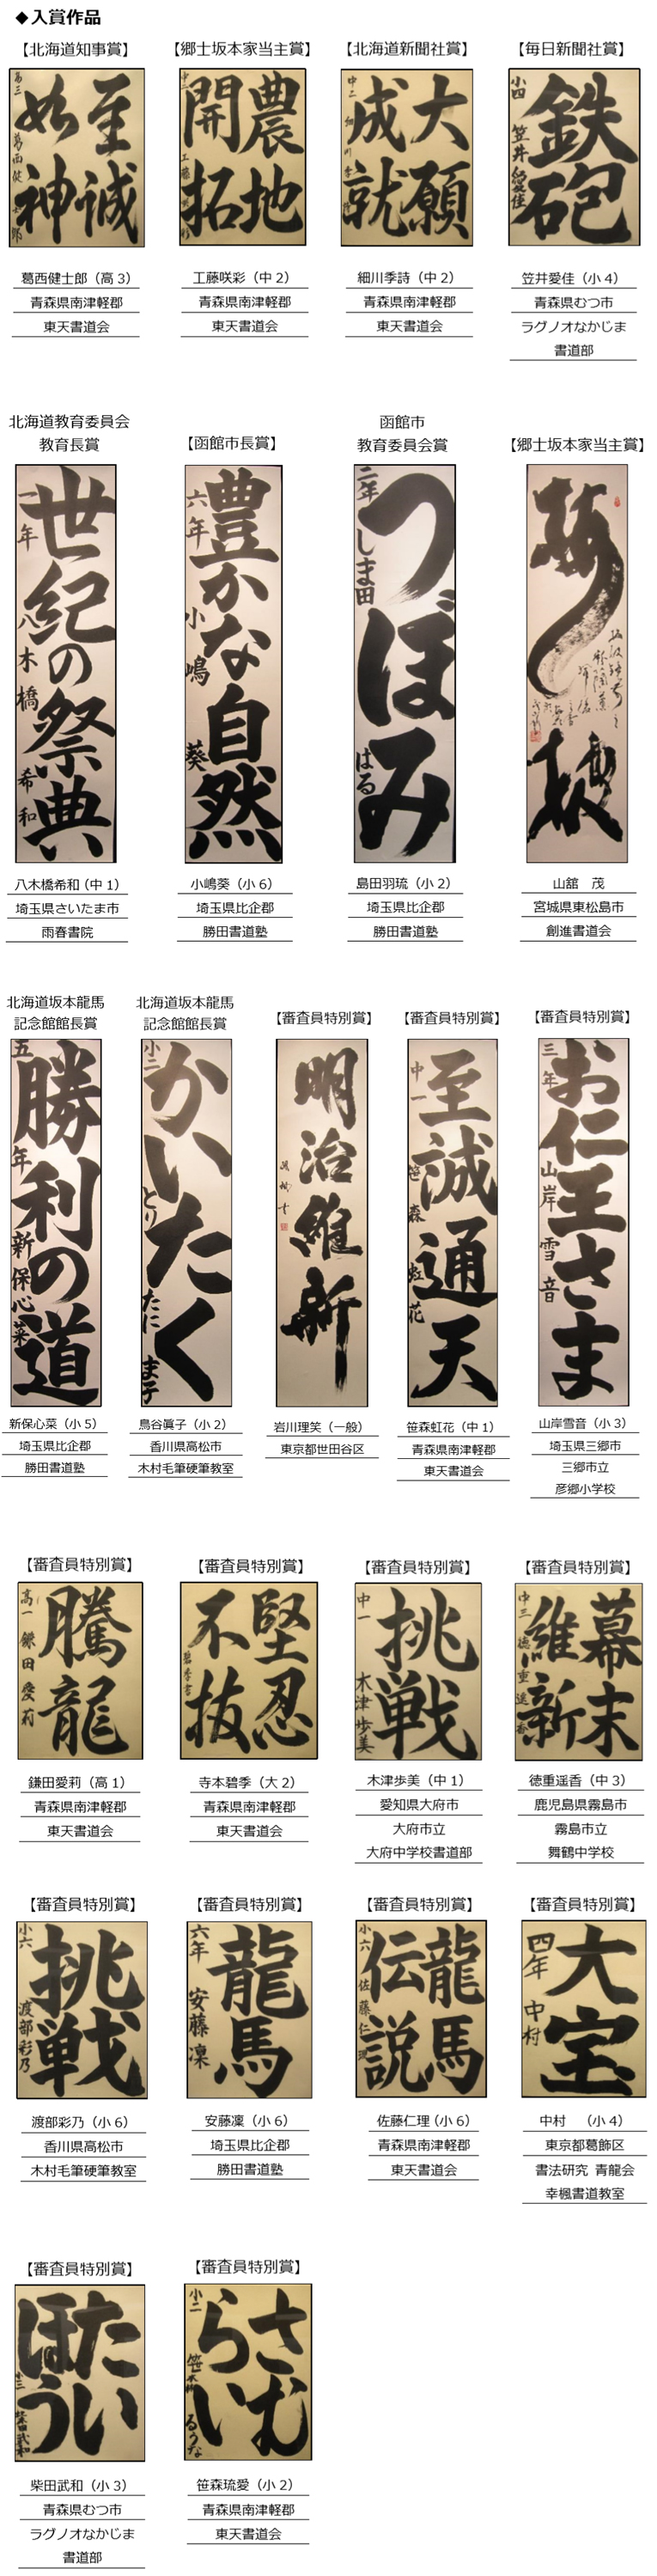 ◆入賞作品
【北海道知事賞】
至誠
如神
高三 葛西健士郎
葛西健士郎（高3）
青森県南津軽郡
東天書道会
【郷士坂本家当主賞】
農地
開拓
中二 工藤咲彩
工藤咲彩（中2）
青森県南津軽郡
東天書道会
【北海道新聞社賞】
大願
成就
中二 細川季詩
細川季詩（中2）
青森県南津軽郡
東天書道会
【毎日新聞社賞】
鉄砲
小四 笠井愛佳
笠井愛佳（小4）
青森県むつ市
ラグノオなかじま
書道部
北海道教育委員会
教育長賞
世紀の祭典
一年 八木橋希和
八木橋希和（中1）
埼玉県さいたま市
雨春書院
【函館市長賞】
豊かな自然
六年 小嶋葵
小嶋葵（小6）
埼玉県比企郡
勝田書道塾
函館市
教育委員会賞
つぼみ
二年 しま田はる
島田羽琉（小2）
埼玉県比企郡
勝田書道塾
【郷士坂本家当主賞】
山舘　茂
宮城県東松島市
創進書道会
北海道坂本龍馬
記念館館長賞
勝利の道
五年 新保心菜
新保心菜（小5）
埼玉県比企郡
勝田書道塾
北海道坂本龍馬
記念館館長賞
かいたく
小二 とりたに ま子
鳥谷眞子（小2）
香川県高松市
木村毛筆硬筆教室
【審査員特別賞】
明治維新
岩川理笑（一般）
東京都世田谷区
【審査員特別賞】
至誠通天
中一 笹森虹花
笹森虹花（中1）
青森県南津軽郡
東天書道会
【審査員特別賞】
お仁王さま
三年 山岸雪音
山岸雪音（小3）
埼玉県三郷市
三郷市立
彦郷小学校
【審査員特別賞】
騰龍
高一 鎌田愛莉
鎌田愛莉（高1）
青森県南津軽郡
東天書道会
【審査員特別賞】
堅忍
不抜
碧季書
寺本碧季（大2）
青森県南津軽郡
東天書道会
【審査員特別賞】
挑戦
中一 木津歩美
木津歩美（中1）
愛知県大府市
大府市立
大府中学校書道部
【審査員特別賞】
幕末
維新
中三 徳重遥香
徳重遥香（中3）
鹿児島県霧島市
霧島市立
舞鶴中学校
【審査員特別賞】
挑戦
小六 渡部彩乃
渡部彩乃（小6）
香川県高松市
木村毛筆硬筆教室
【審査員特別賞】
龍馬
六年 安藤凜
安藤凜（小6）
埼玉県比企郡
勝田書道塾
【審査員特別賞】
龍馬
伝説
小六 佐藤仁理
佐藤仁理（小6）
青森県南津軽郡
東天書道会
【審査員特別賞】
大宝
四年 中村
中村　（小4）
東京都葛飾区
書法研究 青龍会
幸楓書道教室
【審査員特別賞】
たい
ほう
小三 柴田武和
柴田武和（小3）
青森県むつ市
ラグノオなかじま
書道部
【審査員特別賞】
さむ
らい
小二 笹森るうな
笹森琉愛（小2）
青森県南津軽郡
東天書道会